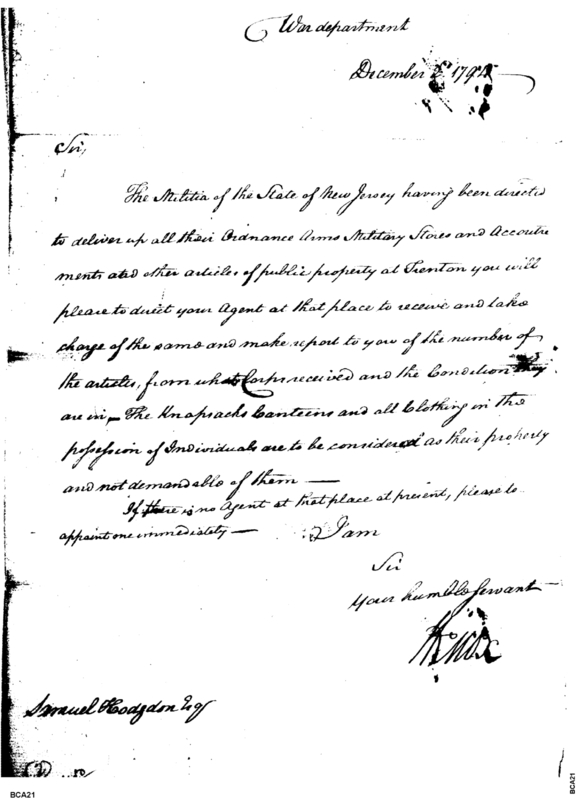 War department
December 1794
Sir,
The Militia of the State of New Jersey having been directed
to deliver up all their Ordnance Arms Military Stores and Accoutre
ments and other articles of public property at Trenton you will
please to direct your Agent at that place to receive and take
charge of the same and make report to you of the number of
the articles, from what Corps received and the Condition they
are in,— The Knapsacks Canteens and all Clothing in the
possession of Individuals are to be considered as their property
and not demandable of them —
If there is no Agent at that place at present, please to
appoint one immediately — I am
Sir
Your humble Servant
HKnox
Samuel Hodgdon Esqr
BCA21
BCA21